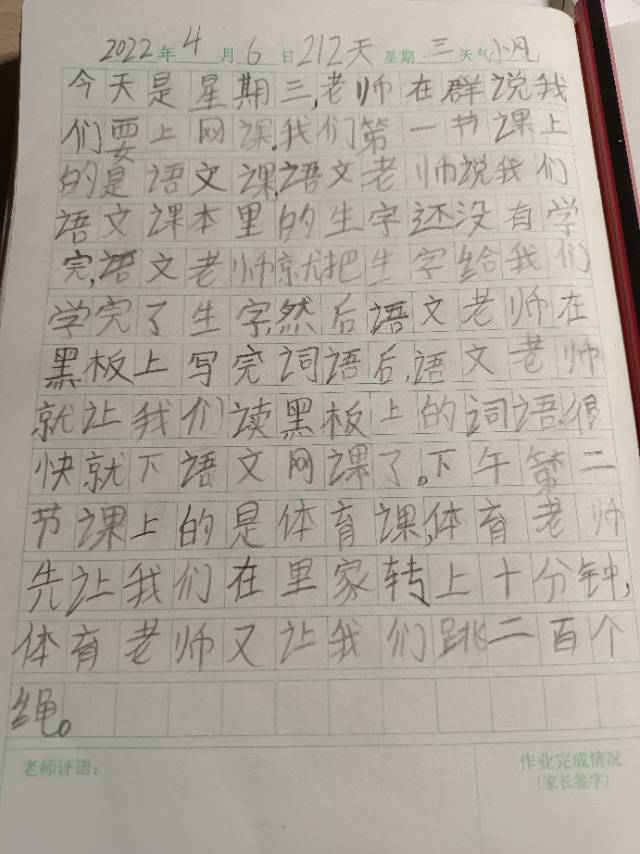 2022年4月6日212天 星期三天气小风
今天是星期三,老师在群说我
们要上网课.我们第一节课上
的是语文课,语文老师说我们
语文课本里的生字还没有学
完,语文老师就把生字给我们
学完了生字,然后语文老师在
黑板上写完词语后,语文老师
就让我们读黑板上的词语.很
快就下语文网课了。下午第二
节课上的是体育课,体育老师
先让我们在里家转上十分钟,
体育老师又让我们跳二百个
绳。
老师评语: 作业完成情况
(家长签字)